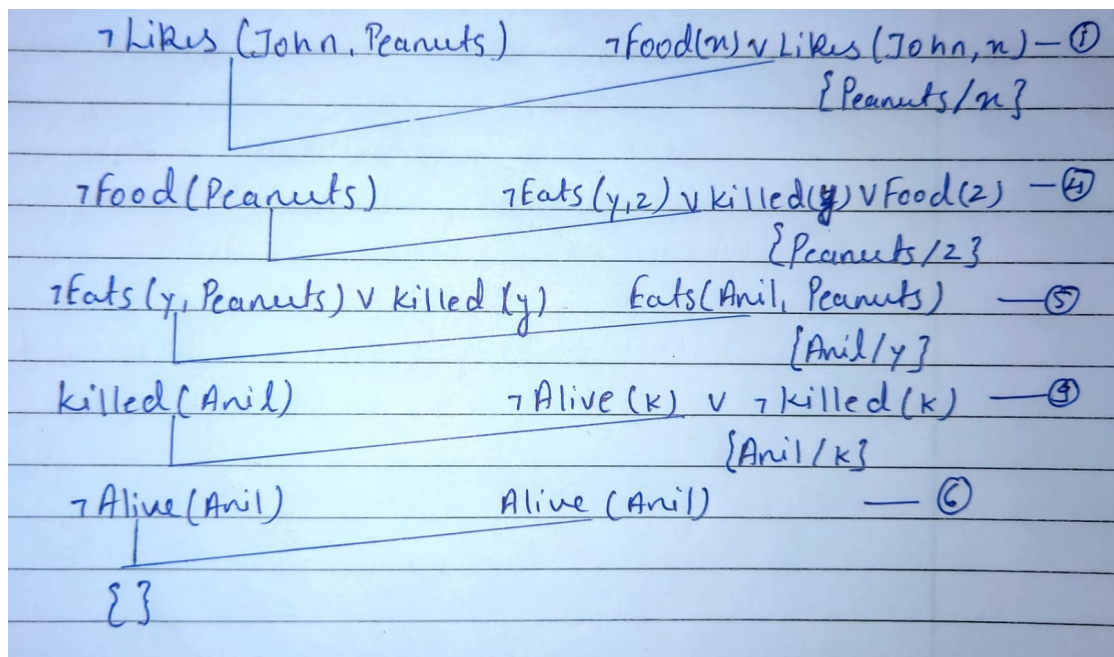 ¬Likes (John, Peanuts) ¬Food(x) ∨ Likes (John, x) — ①
{Peanuts/x}
¬Food (Peanuts) ¬Eats (y,z) ∨ killed(y) ∨ Food(z) — ④
{Peanuts/z}
¬Eats (y, Peanuts) ∨ killed (y) Eats (Anil, Peanuts) — ⑤
{Anil/y}
killed (Anil) ¬Alive (k) ∨ ¬killed (k) — ⑨
{Anil/k}
¬Alive (Anil) Alive (Anil) — ⑥
{ }